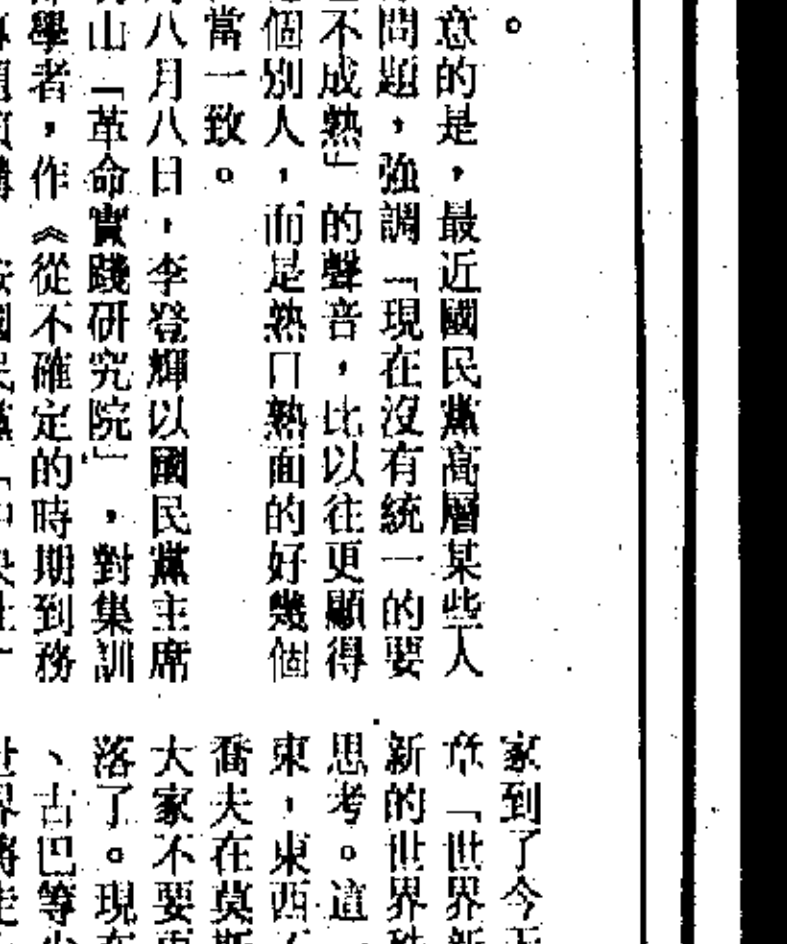 。
意的是，最近國民黨高層某些人
問題，強調「現在沒有統一的要
不成熟」的聲音，比以往更顯得
個別人，而是熟口熟面的好幾個
當一致。
八月八日，李登輝以國民黨主席
山「革命實踐研究院」，對集訓
學者，作《從不確定的時期到務
家到了今
章「世界新
新的世界秩
思考。這
東，東西
喬夫在莫斯
大家不要再
落了。現在
、古巴等少
世界將走